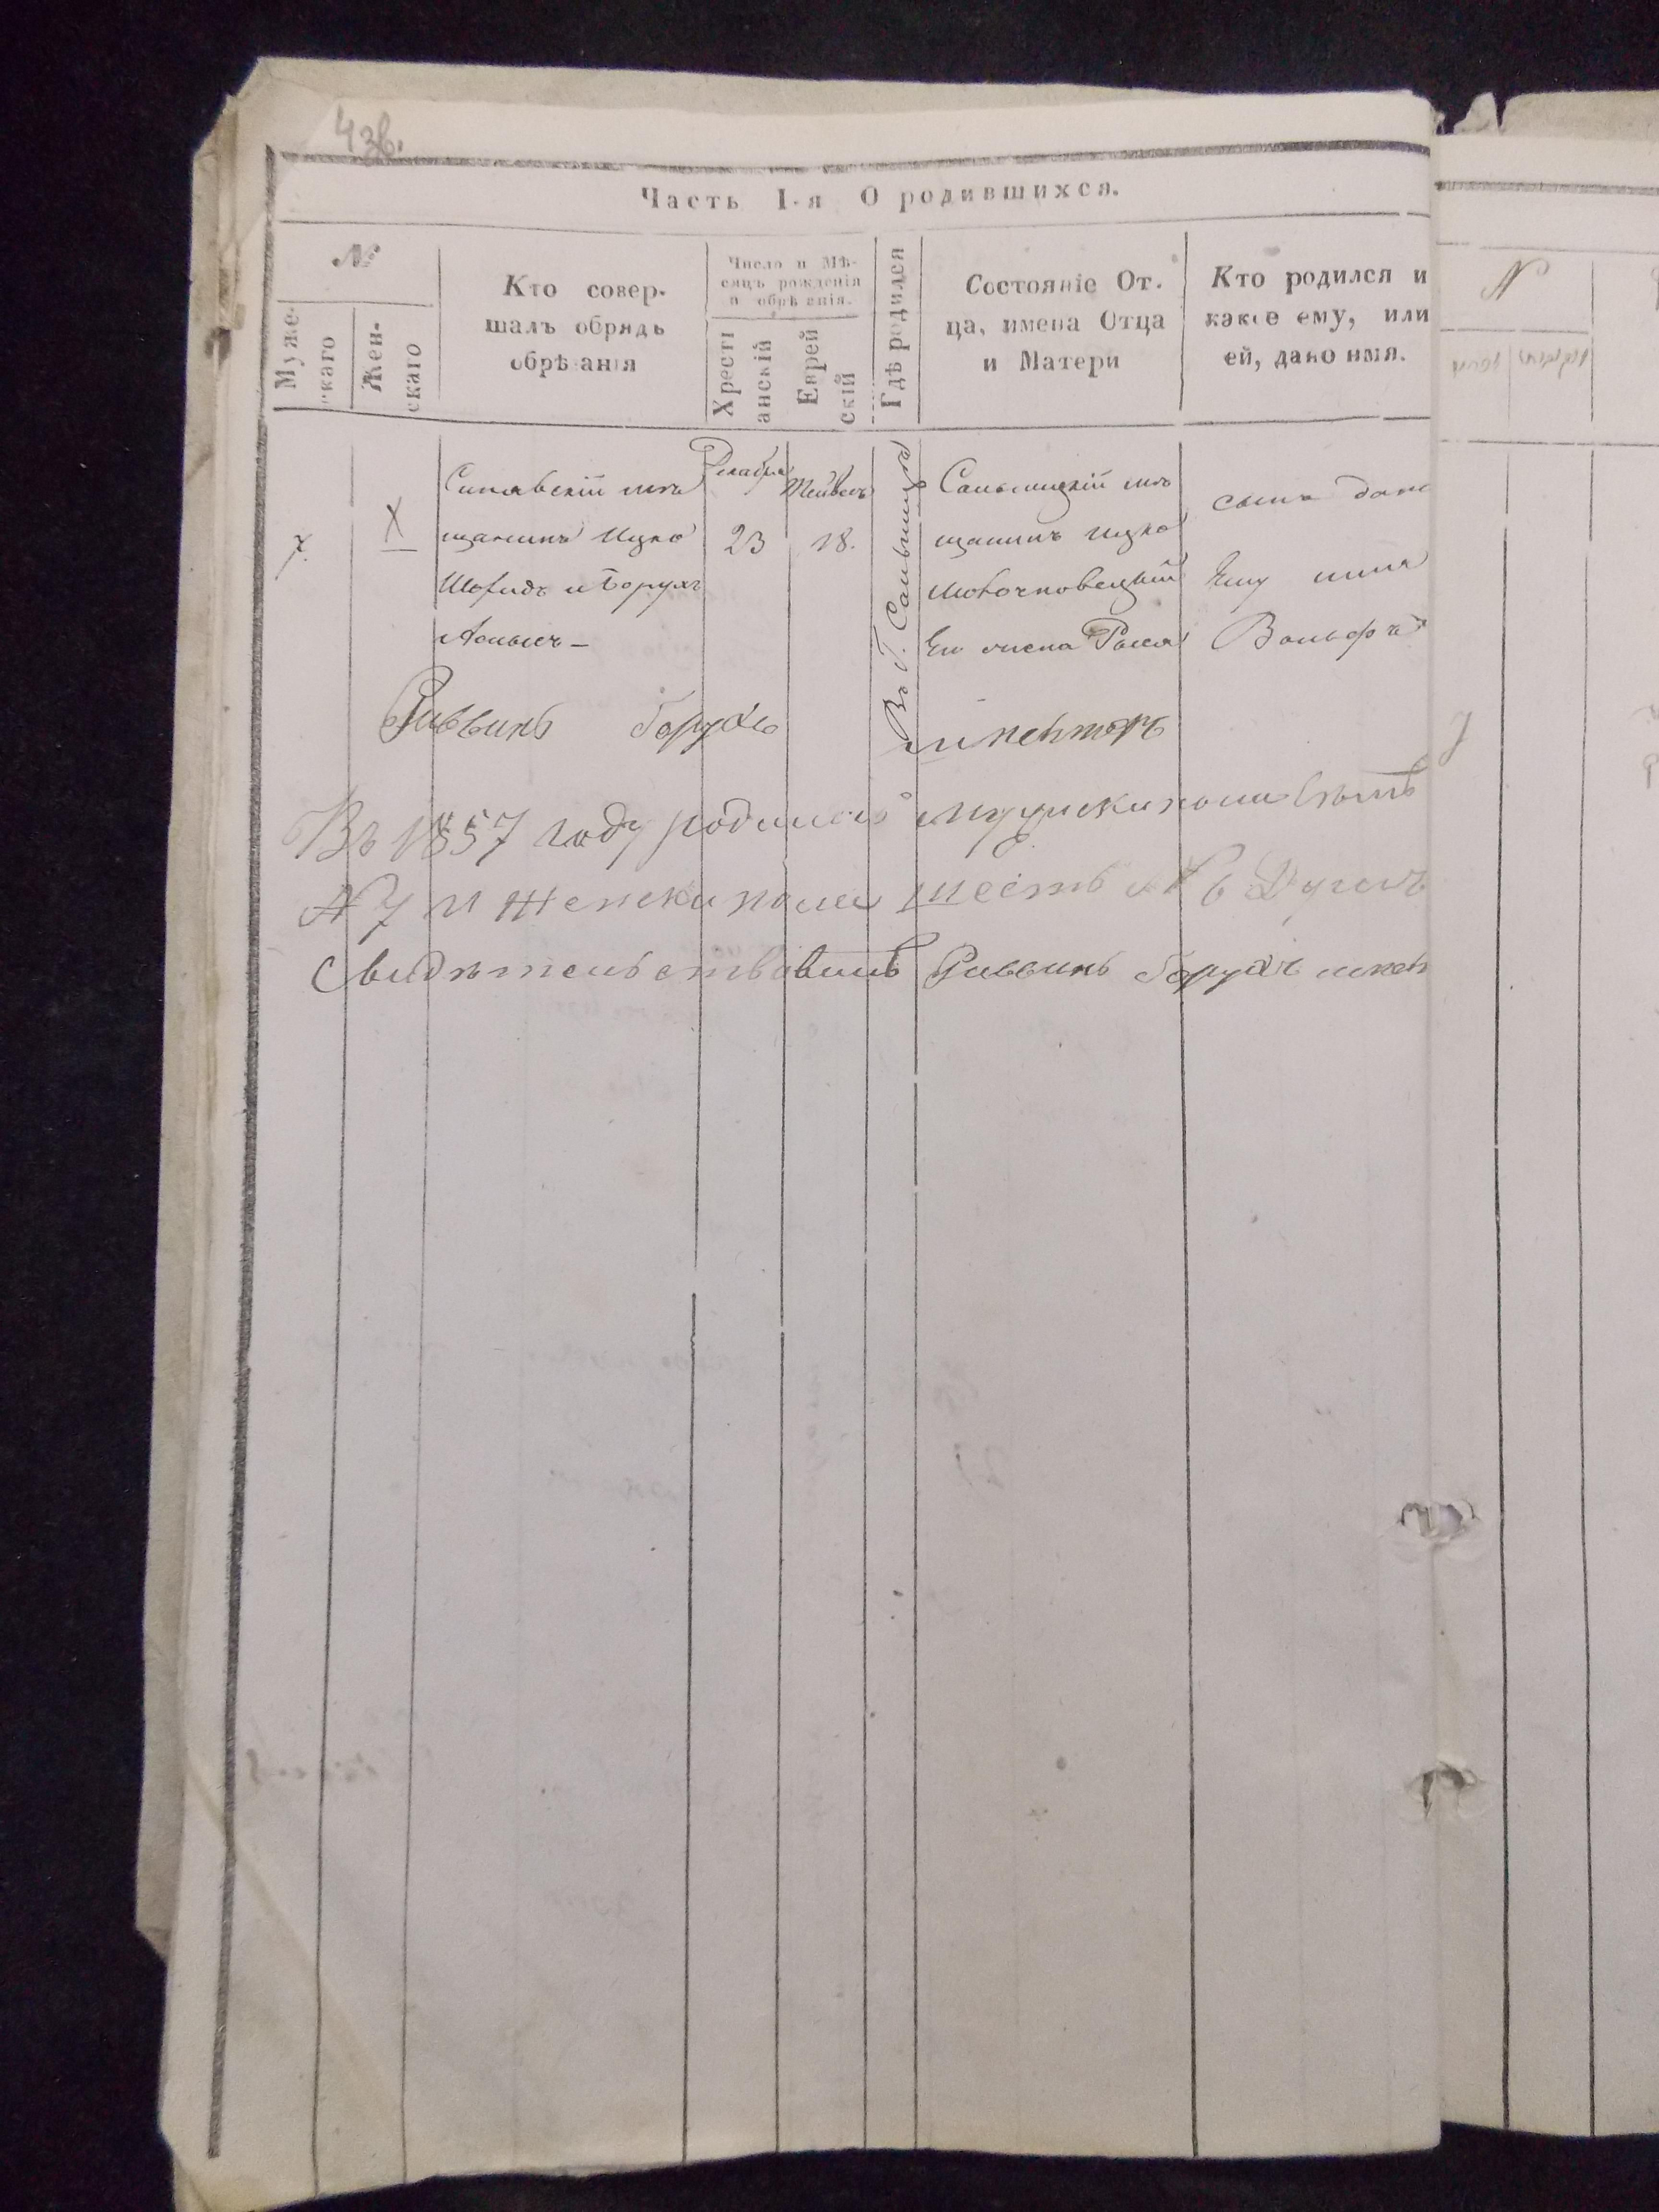 43в.
Часть I-я О родившихся.
№
Мужескаго
Женскаго
Кто совер-
шалъ обрядъ
обрѣзанія
Число и Мѣ-
сяцъ рожденія
и обрѣзанія.
Хрестi
анскій
Еврей
скій
Гдѣ родился
Состояніе От-
ца, имена Отца
и Матери
Кто родился и
какое ему, или
ей, дано имя.
7.
X
Синявскій мѣ
щанинъ Ицко
и Борухъ
Декабря
23
Тейвесъ
18.
Въ Г. Сальница
Сальницкій мѣ
щанинъ Ицко
Его жена
сынъ дано
Ему имя
Вольфъ
Раввинъ Борухъ
Въ 1857 году родилось мужска пола
№ 7 и женска пола шесть № 6 Душъ
Свидѣтельствовавшъ Раввинъ Борухъ
№